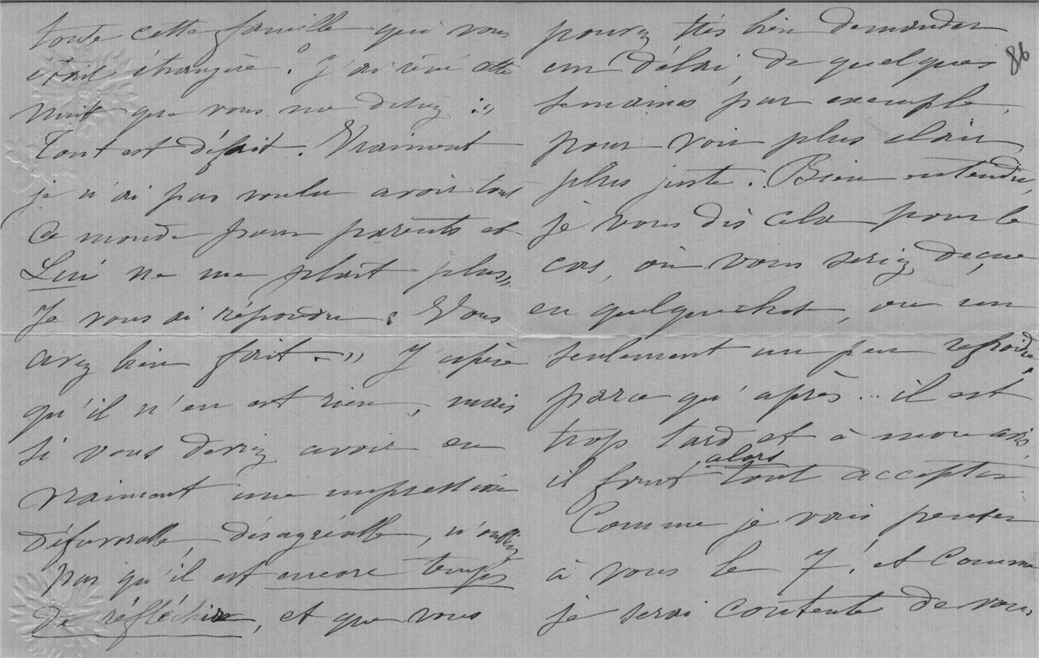 toute cette famille qui vous
était étrangère. J'ai rêvé cette
nuit que vous me disiez : "
Tout est défait. Vraiment
je n'ai pas voulu avoir tout
ce monde pour parents et
Lui ne me plait plus"
Je vous ai répondu : Vous
avez bien fait. " J'espère
qu'il n'en est rien, mais
si vous deviez avoir eu
vraiment une impression
défavorable, désagréable, n'oubliez
pas qu'il est encore temps
de réfléchir, et que vous
pouvez très bien demander
un délai, de quelques
semaines par exemple,
pour voir plus clair,
plus juste. Bien entendu,
je vous dis cela pour le
cas, où vous seriez déçue
en quelque chose, ou un
seulement un peu refroidie,
parce qu'après... il est
trop tard et à mon avis
il faut alors tout accepter
Comme je vais penser
à vous le 7! et comme
je serai contente de vous
86